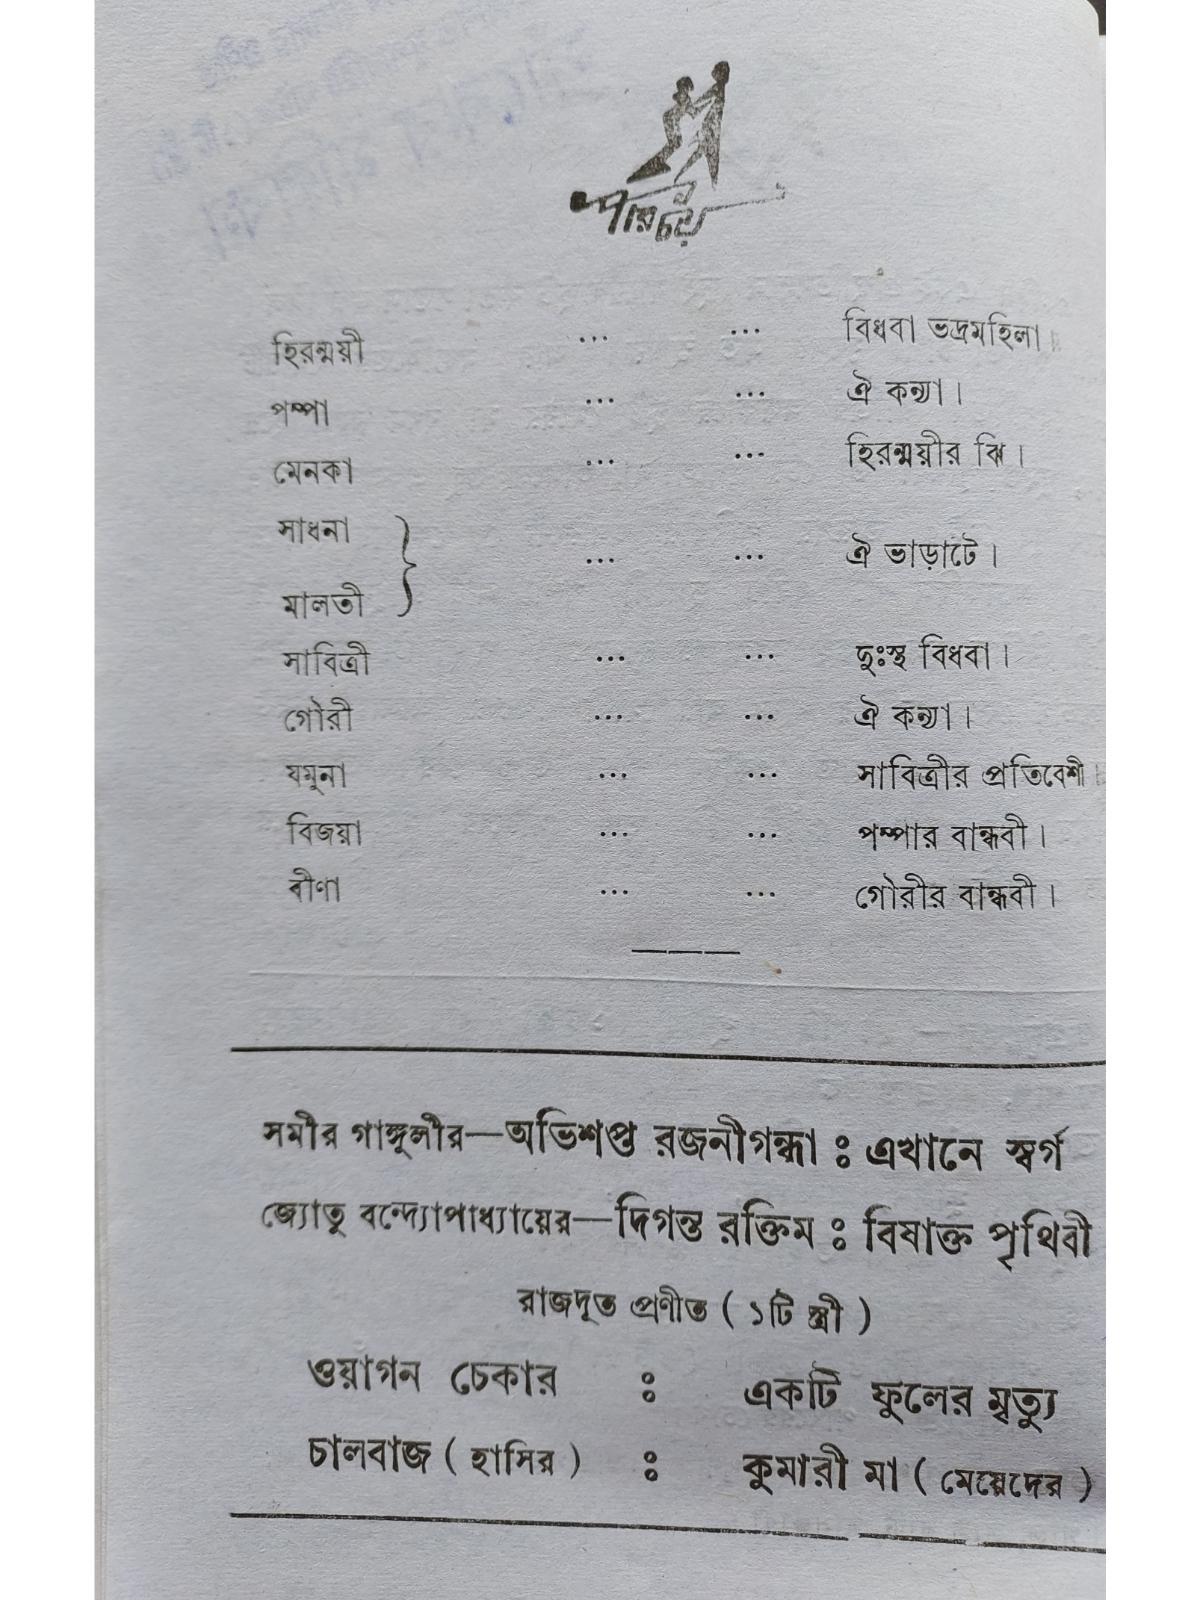 পরিচয়
হিরন্ময়ী ... ... বিধবা ভদ্রমহিলা।
পম্পা ... ... ঐ কন্যা।
মেনকা ... ... হিরন্ময়ীর ঝি।
সাধনা
মালতী } ... ... ঐ ভাড়াটে।
সাবিত্রী ... ... দুঃস্থ বিধবা।
গৌরী ... ... ঐ কন্যা।
যমুনা ... ... সাবিত্রীর প্রতিবেশী।
বিজয়া ... ... পম্পার বান্ধবী।
বীণা ... ... গৌরীর বান্ধবী।
সমীর গাঙ্গুলীর—অভিশপ্ত রজনীগন্ধা : এখানে স্বর্গ
জ্যোতু বন্দ্যোপাধ্যায়ের—দিগন্ত রক্তিম : বিষাক্ত পৃথিবী
রাজদূত প্রণীত ( ১টি স্ত্রী )
ওয়াগন চেকার : একটি ফুলের মৃত্যু
চালবাজ ( হাসির ) : কুমারী মা ( মেয়েদের )